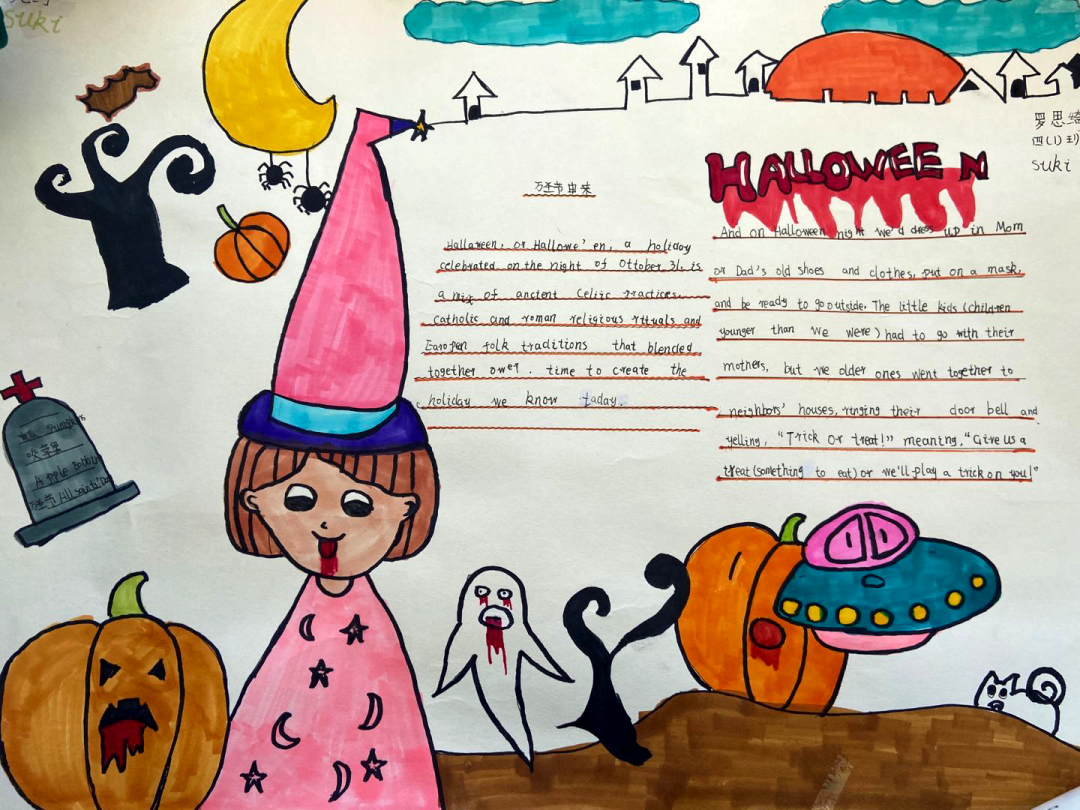 Suki
罗思绮
四(1)班
suki
万圣节由来
HALLOWEEN
Hallaween, or Hallowe'en, a holiday
celebrated on the night of Ottober 31. is
a mix of ancient Celtic Practices.
catholic and roman religious rituals and
Earopen folk traditions that blended
together ower. time to create the
holiday we know taday.
And on Halloween night we'd dress up in Mom
or Dad's old shoes and clothes, put on a mask,
and be ready to go outside. The little kids (children
younger than we were) had to go with their
mothers, but we older ones went together to
neighbors' houses, ringing their door bell and
yelling, "Trick or treat!" meaning, "Give us a
treat (something to eat) or we'll play a trick on you!"
咬苹果
Apple Bobbing
万圣节/All saints' Day